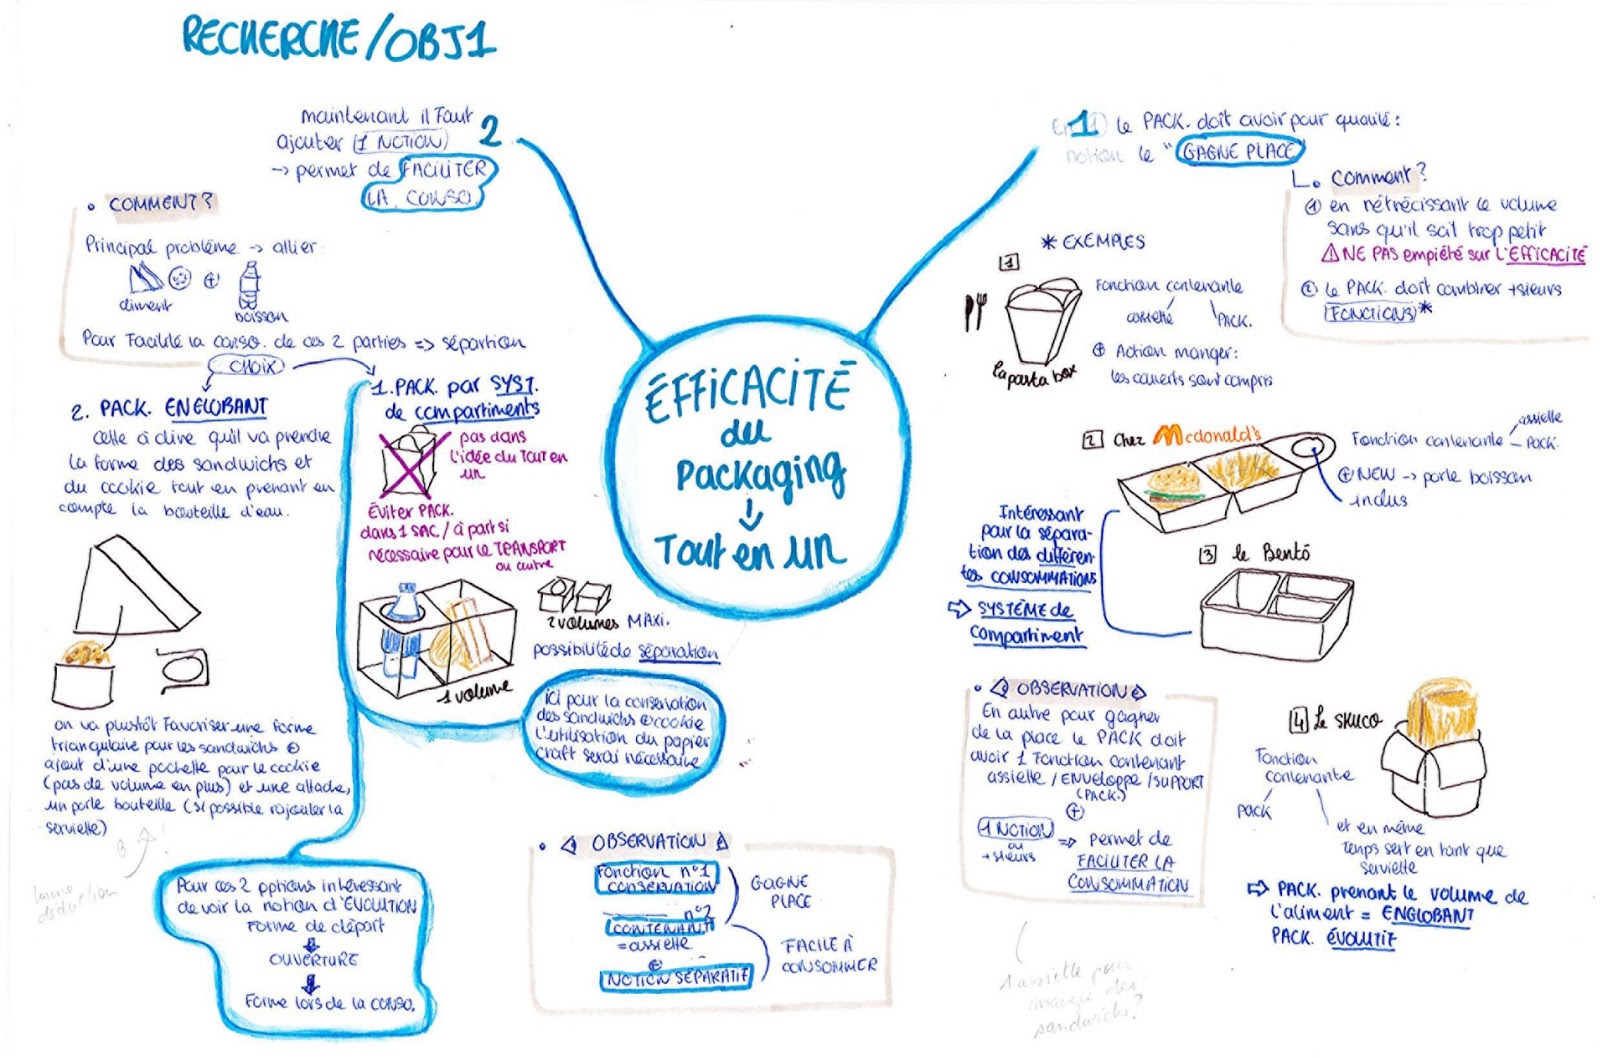 RECHERCHE/OBJ1
maintenant il Faut
ajouter (1 NOTION)
→ permet de FACILITER
LA CONSO.
2
• COMMENT?
Principal problème → allier:
aliment
+
boisson
Pour Facilité la conso. de ces 2 parties => sépartion
CHOIX
2. PACK. ENGLOBANT
celle à dire qu'il va prendre
la forme des sandwichs et
du cookie tout en prenant en
compte la bouteille d'eau.
on va plustôt Favoriser une Forme
triangulaire pour les sandwichs +
ajout d'une pochette pour le cookie
(pas de volume en plus) et une attache,
un porte bouteille (si possible rajouter la
serviette)
1. PACK. par SYST.
de compartiments
pas dans
l'idée du Tout en
un
Éviter PACK.
dans 1 SAC / à part si
nécessaire pour le TRANSPORT
ou autre
2 volumes MAXI.
possibilité de séparation
1 volume
ici pour la conservation
des sandwichs + cookie
l'utilisation du papier
craft serai nécessaire
Pour ces 2 options intéressant
de voir la notion d'ÉVOLUTION
Forme de départ
OUVERTURE
Forme lors de la conso.
• OBSERVATION
Fonction n°1
CONSERVATION
n°2
CONTENANT
= assiette
+
NOTION SÉPARATIF
GAGNE
PLACE
FACILE À
CONSOMMER
ÉFFiCACITÉ
du
Packaging
↓
Tout en un
1
le PACK. doit avoir pour qualité:
notion le "GAGNE PLACE"
• Comment?
① en rétrécissant le volume
sans qu'il soit trop petit
⚠ NE PAS empiété sur l'EFFICACITÉ
② le PACK. doit combiner +sieurs
FONCTIONS*
* EXEMPLES
1
la pasta box
Fonction contenante
assiette
PACK.
+ Action manger:
les couverts sont compris
2 Chez Mcdonald's
Fonction contenante
assiette
PACK.
+ NEW → porte boisson
inclus
Intéressant
pour la sépara-
tion des différen-
tes CONSOMMATIONS
⇨ SYSTÈME de
compartiment
3 le Bentô
• OBSERVATION
En autre pour gagner
de la place le PACK doit
avoir 1 Fonction contenant
assiette / ENVELOPPE / SUPPORT
(PACK.)
+
1 NOTION
ou
+sieurs
=> permet de
FACILITER LA
CONSOMMATION
4 Le SKUCO
Fonction
contenante
PACK
et en même
Temps sert en tant que
serviette
⇨ PACK. prenant le volume de
l'aliment = ENGLOBANT
PACK. ÉVOLUTIF
1 assiette pour
manger des
sandwichs?